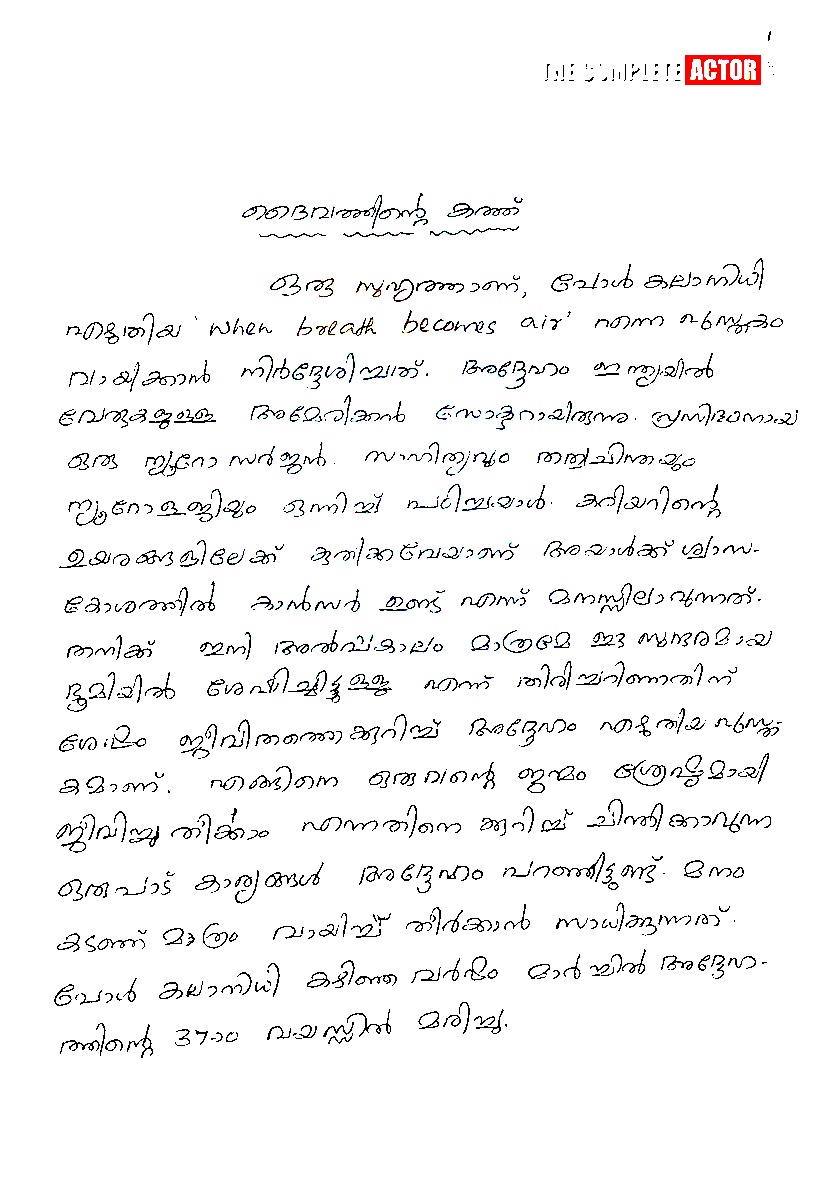 1
THE COMPLETE ACTOR
ദൈവത്തിന്റെ കത്ത്
ഒരു സുഹൃത്താണ്, പോൾ കലാനിധി
എഴുതിയ 'when breath becomes air' എന്ന പുസ്തകം
വായിക്കാൻ നിർദ്ദേശിച്ചത്. അദ്ദേഹം ഇന്ത്യയിൽ
വേരുകളുള്ള അമേരിക്കൻ ഡോക്ടറായിരുന്നു. പ്രസിദ്ധനായ
ഒരു ന്യൂറോ സർജൻ. സാഹിത്യവും തത്വചിന്തയും
ന്യൂറോളജിയും ഒന്നിച്ച് പഠിച്ചയാൾ. കരിയറിന്റെ
ഉയരങ്ങളിലേക്ക് കുതിക്കവേയാണ് അയാൾക്ക് ശ്വാസ-
കോശത്തിൽ കാൻസർ ഉണ്ട് എന്ന് മനസ്സിലാവുന്നത്.
തനിക്ക് ഇനി അൽപ്പകാലം മാത്രമേ ഈ സുന്ദരമായ
ഭൂമിയിൽ ശേഷിച്ചിട്ടുള്ളു എന്ന് തിരിച്ചറിഞ്ഞതിന്
ശേഷം ജീവിതത്തെക്കുറിച്ച് അദ്ദേഹം എഴുതിയ പുസ്ത-
കമാണ്. എങ്ങിനെ ഒരുവന്റെ ജന്മം ശ്രേഷ്ഠമായി
ജീവിച്ചു തീർക്കാം എന്നതിനെ ക്കുറിച്ച് ചിന്തിക്കാവുന്ന
ഒരുപാട് കാര്യങ്ങൾ അദ്ദേഹം പറഞ്ഞിട്ടുണ്ട്. മനം
കടഞ്ഞ് മാത്രം വായിച്ച് തീർക്കാൻ സാധിക്കുന്നത്.
പോൾ കലാനിധി കഴിഞ്ഞ വർഷം മാർച്ചിൽ അദ്ദേഹ-
ത്തിന്റെ 37ാം വയസ്സിൽ മരിച്ചു.